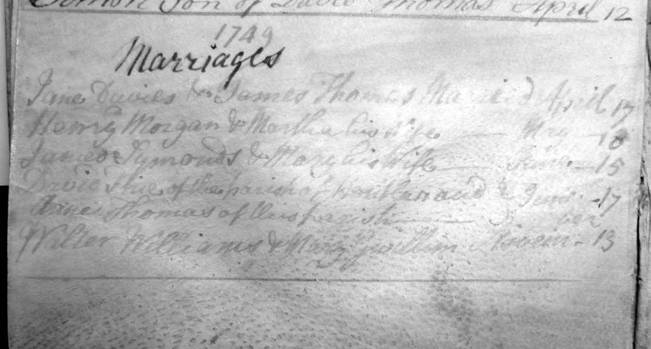 Son of David Thomas April 12
1749
Marriages
Jane Davies & James Thomas Married April 17
Henry Morgan & Martha his Wife May 18
James Symonds & Mary his Wife 15
David of the parish of & June 17
Thomas of this parish
Walter Williams & Mary Gwillim 13